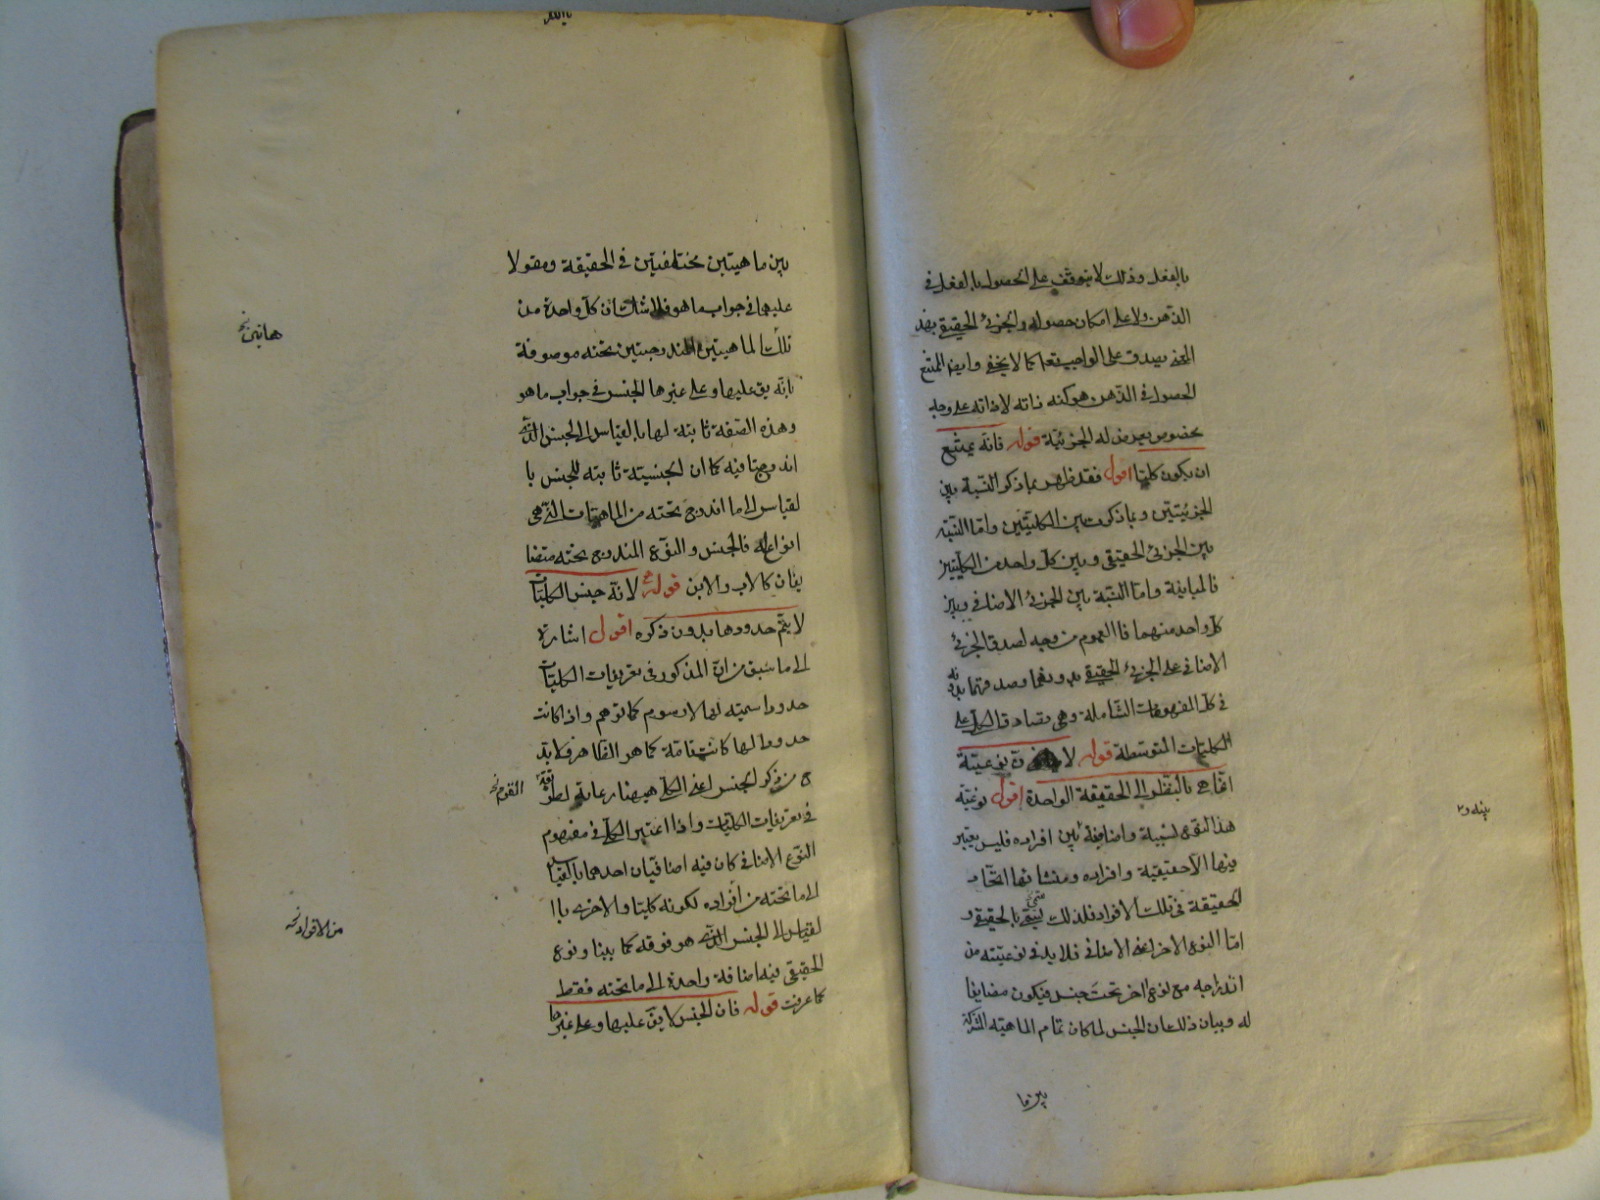 بالفعل وذلك لا يتوقف على الحصول بالفعل في
الذهن ولا على امكان حصوله والجزئ الحقيقي بهذ
المعنى يصدق على الواجب تعا كما لا يخفى وايضا الممتنع
الحصول في الذهن هو كنه ذاته لا ذاته على وجه
مخصوص يعرض له الجزئية قوله فانه يمتنع
ان يكون كليا اقول فقد ظهر بما ذكر النسبة بين
الجزئيتين وبما ذكرت بين الكليتين واما النسبة
بين الجزئ الحقيقي وبين كل واحد من الكليتين
فالمباينة واما النسبة بين الجزئ الاضافي وبين
كل واحد منهما فاالعموم من وجه لصدق الجزئ
الاضافي على الجزئ الحقيقي بدونهما وصدقهما بدونه
في كل المفهومات الشاملة وهي تصادق الكل على
الكليات المتوسطة قوله لان نوعيته
انما هي بالنظر الى الحقيقة الواحدة اقول نوعية
هذا النوع لنسبة واضافة بين افراده فليس يعتبر
فيها الا حقيقية وافراده ومنشائها اتحاد
الحقيقة في تلك الافراد فلذلك بالحقيقي و
اما النوع الاخر اعنى الاضافي فلا بد في نوعيته من
اندراجه مع نوع اخر تحت جنس فيكون مضايفا
له وبيان ذلك ان الجنس لما كان تمام الماهية المشتركة
بين ما
بين ماهيتين مختلفتين في الحقيقة ومقولا
عليهما في جواب ما هو فلا شك ان كل واحدة من
تلك الماهيتين المندرجتين تحته موصوفة
بانه يق عليها وعلى غيرها الجنس في جواب ما هو
وهذه الصفة ثابتة لها بالقياس الى الجنس الذي
اندرجتا فيه كما ان الجنسية ثابتة للجنس با
لقياس الى ما اندرج تحته من الماهيات التي هي
انواع له فالجنس والنوع المندرج تحته متضا
يفان كالاب والابن قوله لانه جنس الكليات
لا يتم حدودها بدون ذكره اقول اشارة
الى ما سبق من ان المذكور في تعريفات الكليات
حدود اسمية لها لا رسوم كما توهم واذا كانت
حدودا لها كانت تامة كما هو الظاهر فلا بد
من ذكر الجنس اعنى الكلي ههنا رعاية لطريقة القوم
في تعريفات الكليات واذا اعتبر الكلي في مفهوم
النوع الاضافي كان فيه اضافتان احدهما بالقياس
الى ما تحته من افراده لكونه كليا والاخرى باا
لقياس الى الجنس الذي هو فوقه كما بينا ونوع
الحقيقي فيه اضافة واحدة الى ما تحته فقط
كما عرفت قوله فان الجنس لا يق عليها وعلى غيرها
هاتين
من الافراد